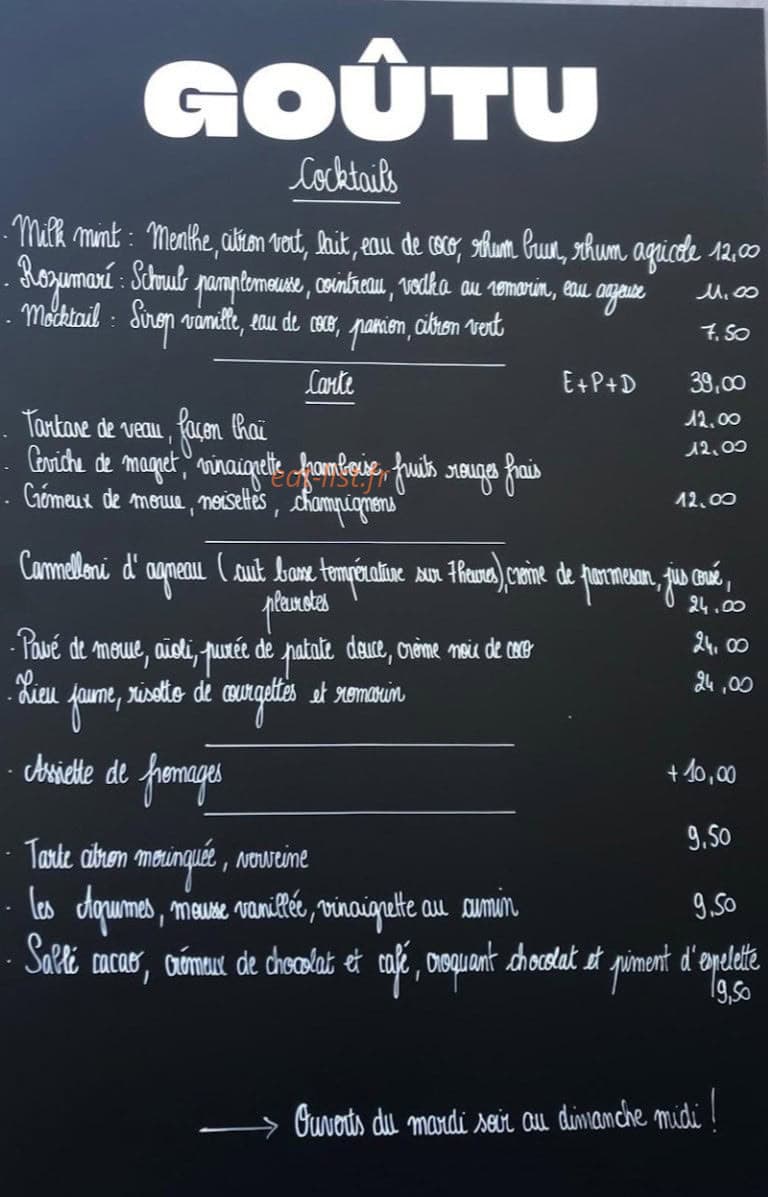 GOÛTU
Cocktails
· Milk mint : Menthe, citron vert, lait, eau de coco, rhum brun, rhum agricole 12,00
· Rozumarí : Schrub pamplemousse, cointreau, vodka au romarin, eau gazeuse 11.00
· Mocktail : Sirop vanille, eau de coco, passion, citron vert 7.50
Carte E+P+D 39,00
· Tartare de veau, façon thaï 12.00
· Ceviche de magret, vinaigrette framboise, fruits rouges frais 12.00
eat-list.fr
· Crémeux de morue, noisettes, champignons 12.00
Cannelloni d'agneau (cuit basse température sur 7heures), crème de parmesan, jus corsé,
pleurotes 24.00
· Pavé de morue, aïoli, purée de patate douce, crème noix de coco 24.00
· Lieu jaune, risotto de courgettes et romarin 24,00
· Assiette de fromages +10,00
· Tarte citron meringuée, verveine 9,50
· Les Agrumes, mousse vanillée, vinaigrette au cumin 9,50
· Sablé cacao, crémeux de chocolat et café, croquant chocolat et piment d'espelette
9,50
→ Ouverts du mardi soir au dimanche midi !